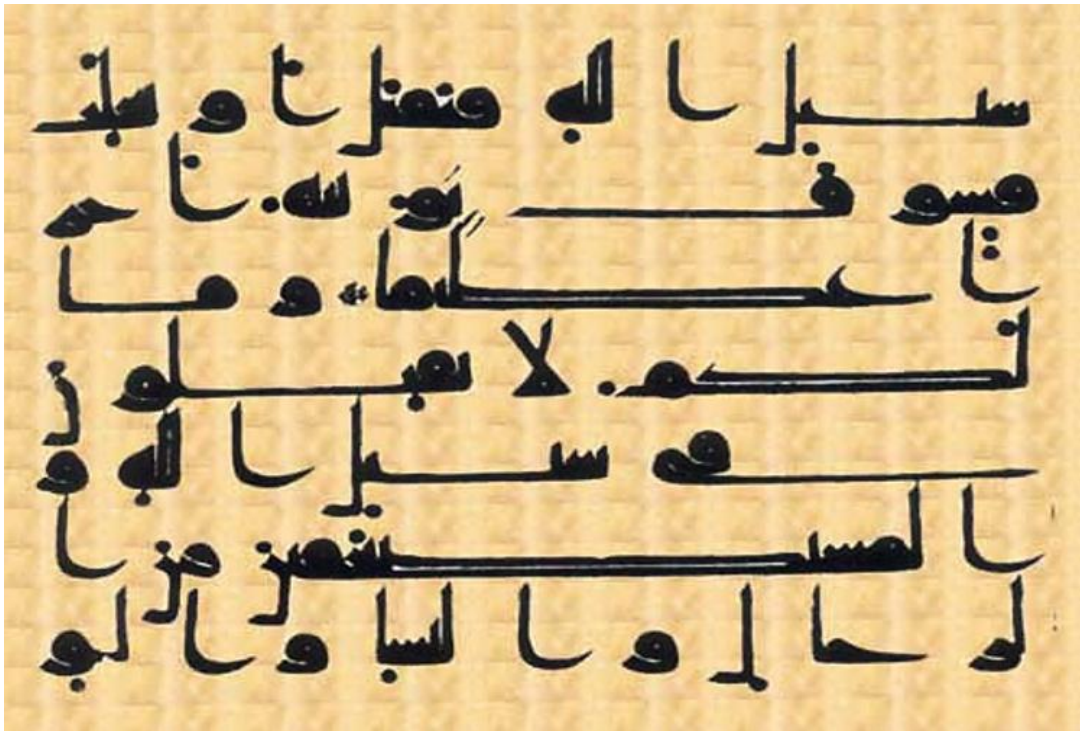 سبيل الله فيقتل او يغلب
فسوف نؤتيه اجر
ا عظيما وما
لكم لا تقتلون
في سبيل الله و
المستضعفين من ا
لرجال والنسا والو